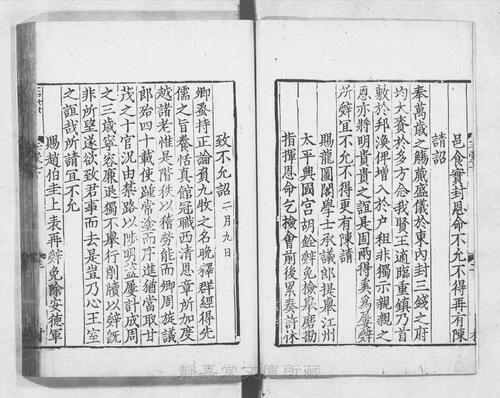 邑食實封恩命不允不得再有陳
請詔
奉萬歲之觴蕆盛儀於東内封三錢之府
均大賚於多方念我賢王適臨重鎮乃首
敷於邦渙俾增入於户租非獨示親親之
恩亦將明貴貴之誼是固兩得奚為屢辤
所辤宜不允不得更有陳請
賜龍圖閣學士承議郎提舉江州
太平興國宫胡銓辤免檢舉磨勘
指揮恩命乞檢會前後累奏許休
致不允詔二月九日
卿蚤持正論負九牧之名晚釋群經得先
儒之旨養恬真館冠職西清恩章所加度
越諸老惟是階秩以稽勞能而卿周旋議
郎殆四十載使踵常塗而序進猶當取甲
茂之十官況由禁路以陟明盍屢計成周
之三歲寧容廉退獨不舉行削牘以辤既
非所望遂欲致君事而去是豈乃心王室
之誼哉所請宜不允
賜趙伯圭上表再辤免除安德軍
靜嘉堂文庫所藏